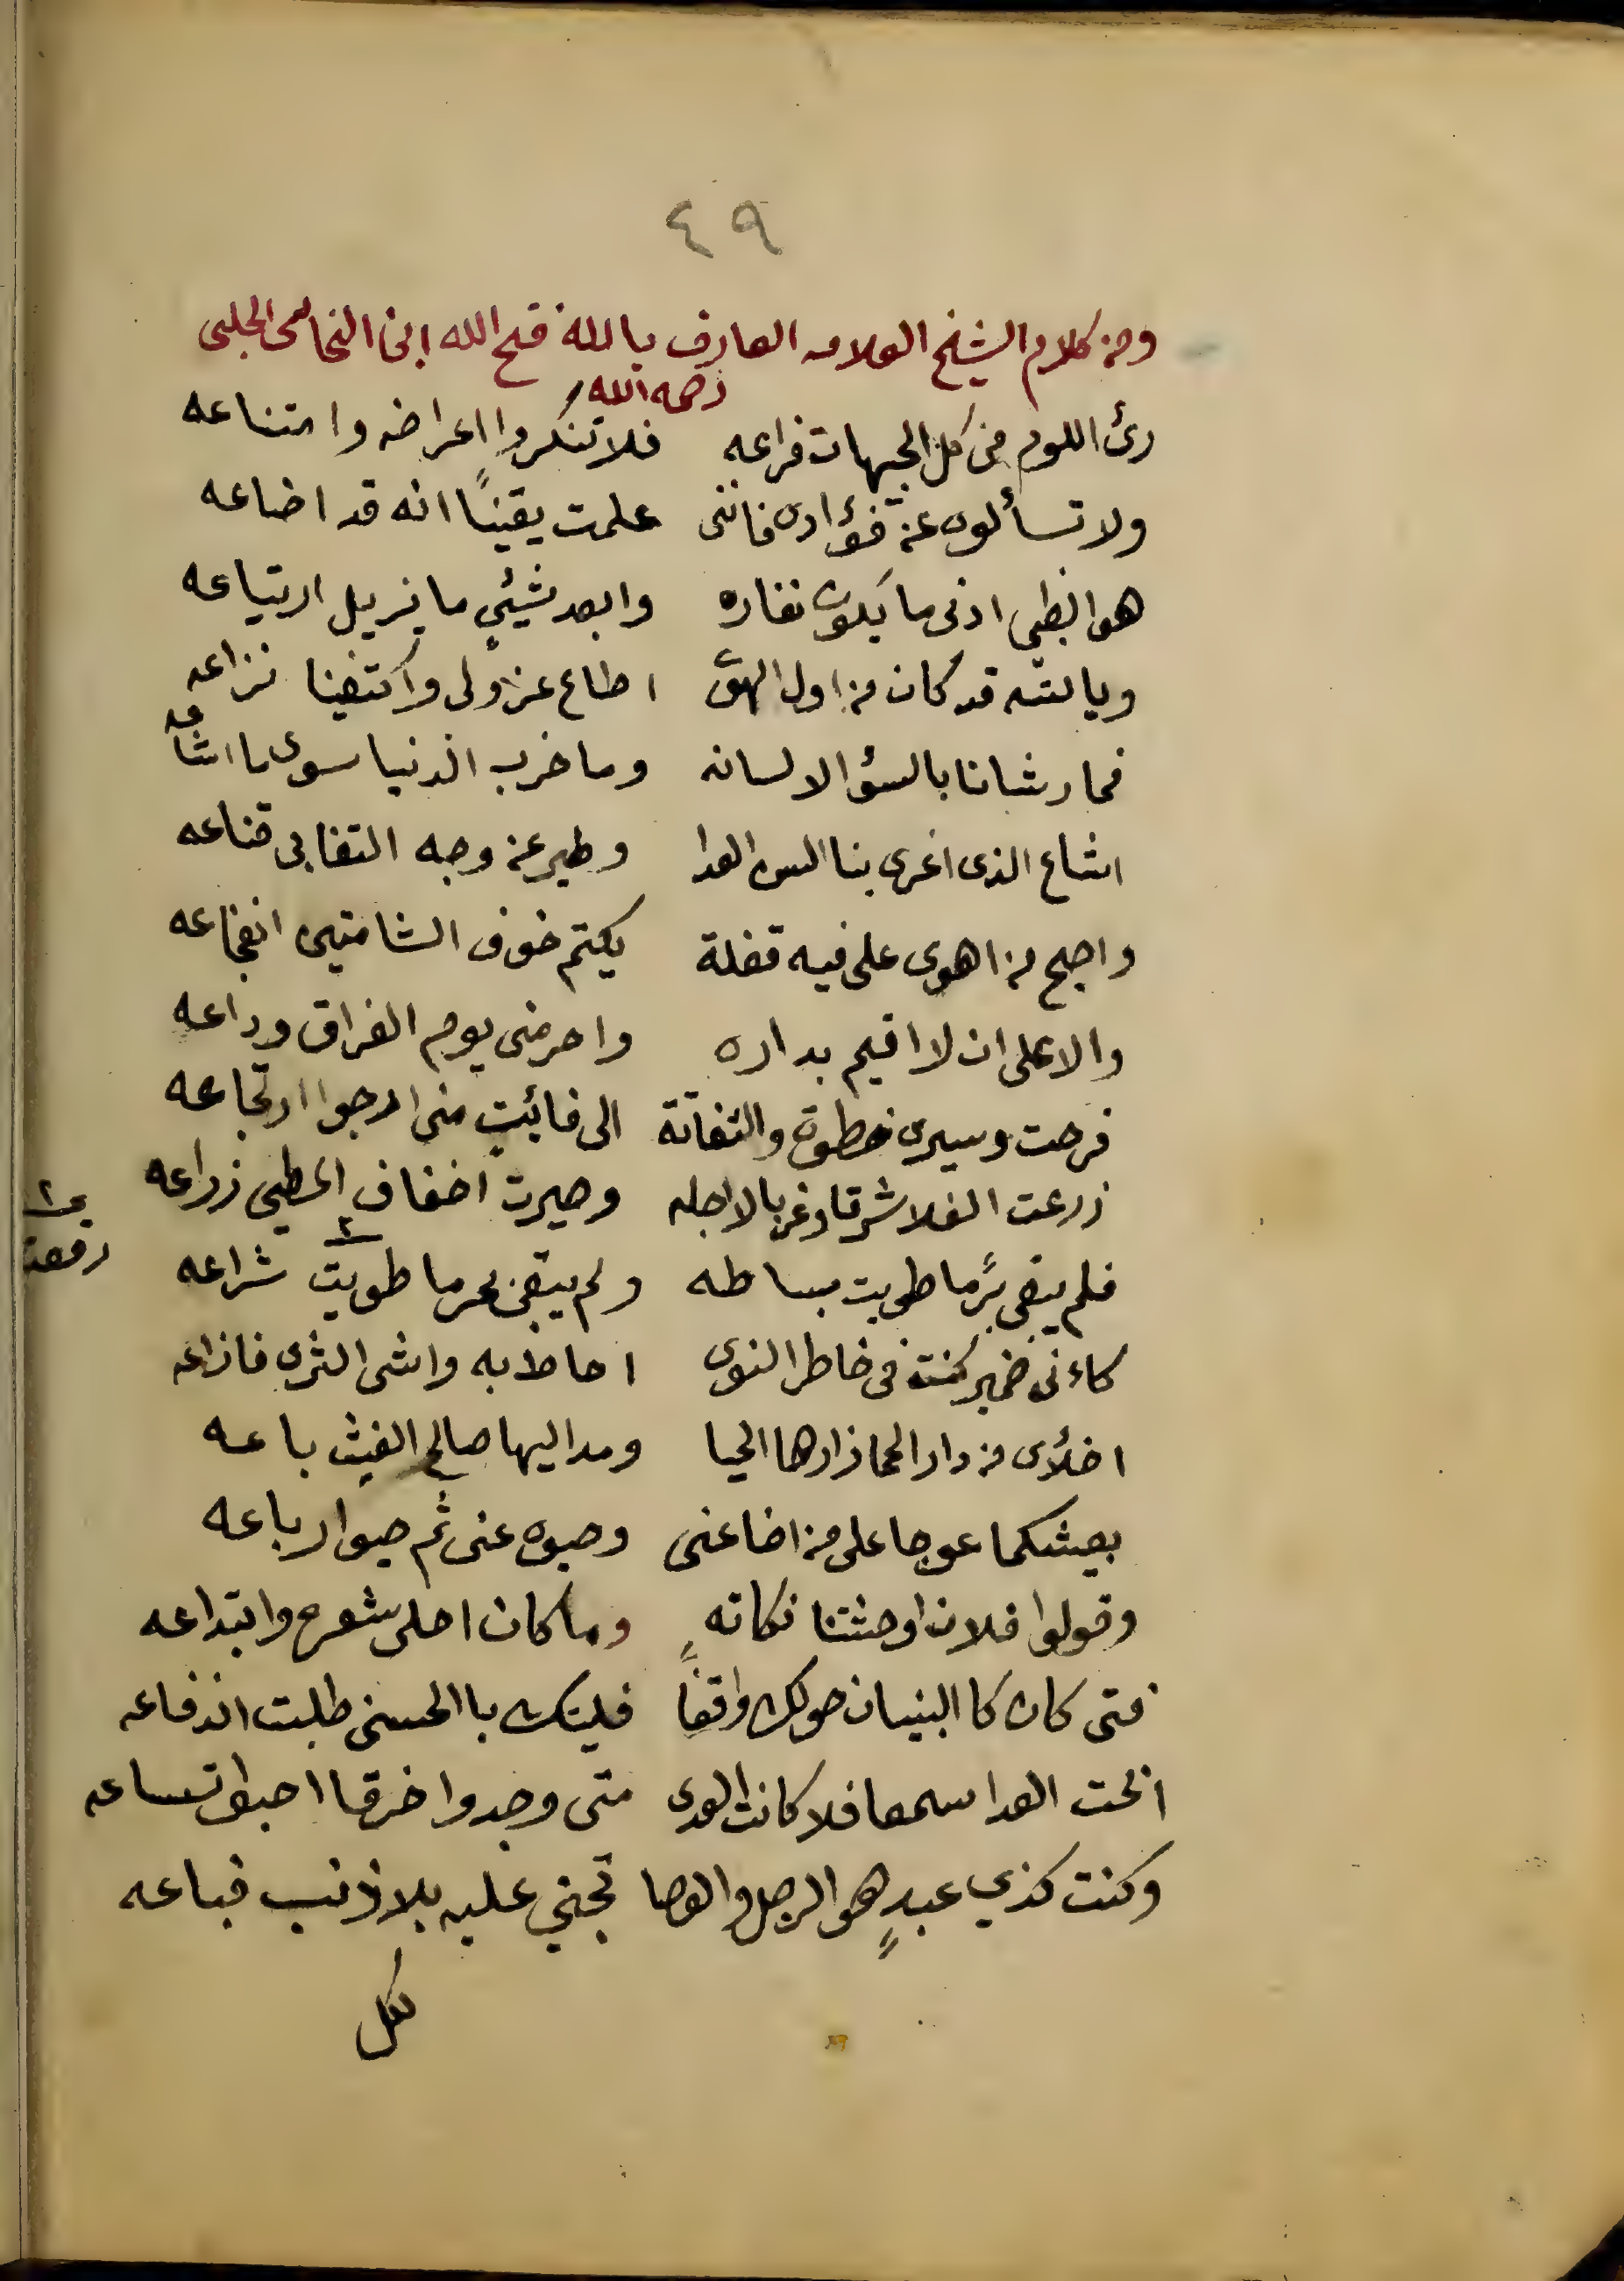 ٤٩
ومن كلام الشيخ العلامه العارف بالله فتح الله ابن النحاس الحلبى
رحمه الله
رئ اللوم من كل الجهات فراعه فلا تنكروا اعراضه وامتناعه
ولا تسألوه عن فؤادى فاننى علمت يقينًا انه قد اضاعه
هو الظبى ادنى ما يكون نفاره وابعد شيئٍ ما يزيل ارتياعه
وياليته قد كان من اول الهوى اطاع عزولى واكتفينا نزاعه
فما رشانا بالسؤ الا لسانه وما خرب الدنيا سوى ما اشاعه
اشاع الذى اغرى بنا السن العدا وطير عن وجه التغابى قناعه
واصبح من اهوى على فيه قفلة يكتم خوف الشامتين انفجاعه
والا على ان لا اقيم بداره واحرمنى يوم الفراق وداعه
فرحت وسيرى خطوة والتفاتة الى فائتٍ منى ارجوا ارتجاعه
زرعت الفلا شرقا وغربا لاجله وصيرت اخفاف المطى زراعه
فلم يبقى برٌ ما طويت بساطه ولم يبقى بحر ما طويت شراعه
٢
٢
رفعت
كاءنى ضمير كنت فى خاطر النوى احاط به واشى الثرى فاذاعه
اخلاى من دار الحما زارها الحيا ومد اليها صالح الغيث باعه
بعيشكما عوجا على من اضاعنى وحيوه عنى ثم حيوا رباعه
وقولوا فلان اوحشتنا نكاته وما كان احلى شعره وابتداعه
فتى كان كا البنيان حولك واقفاً فليتك با الحسنى طلبت اندفاعه
ابحت العدا سمعا فلا كانت العدى متى وجدوا خرقا احبوا تساعه
وكنت كذي عبدٍ هو الرجل والعصا تجنى عليه بلا ذنب فباعه
لكل